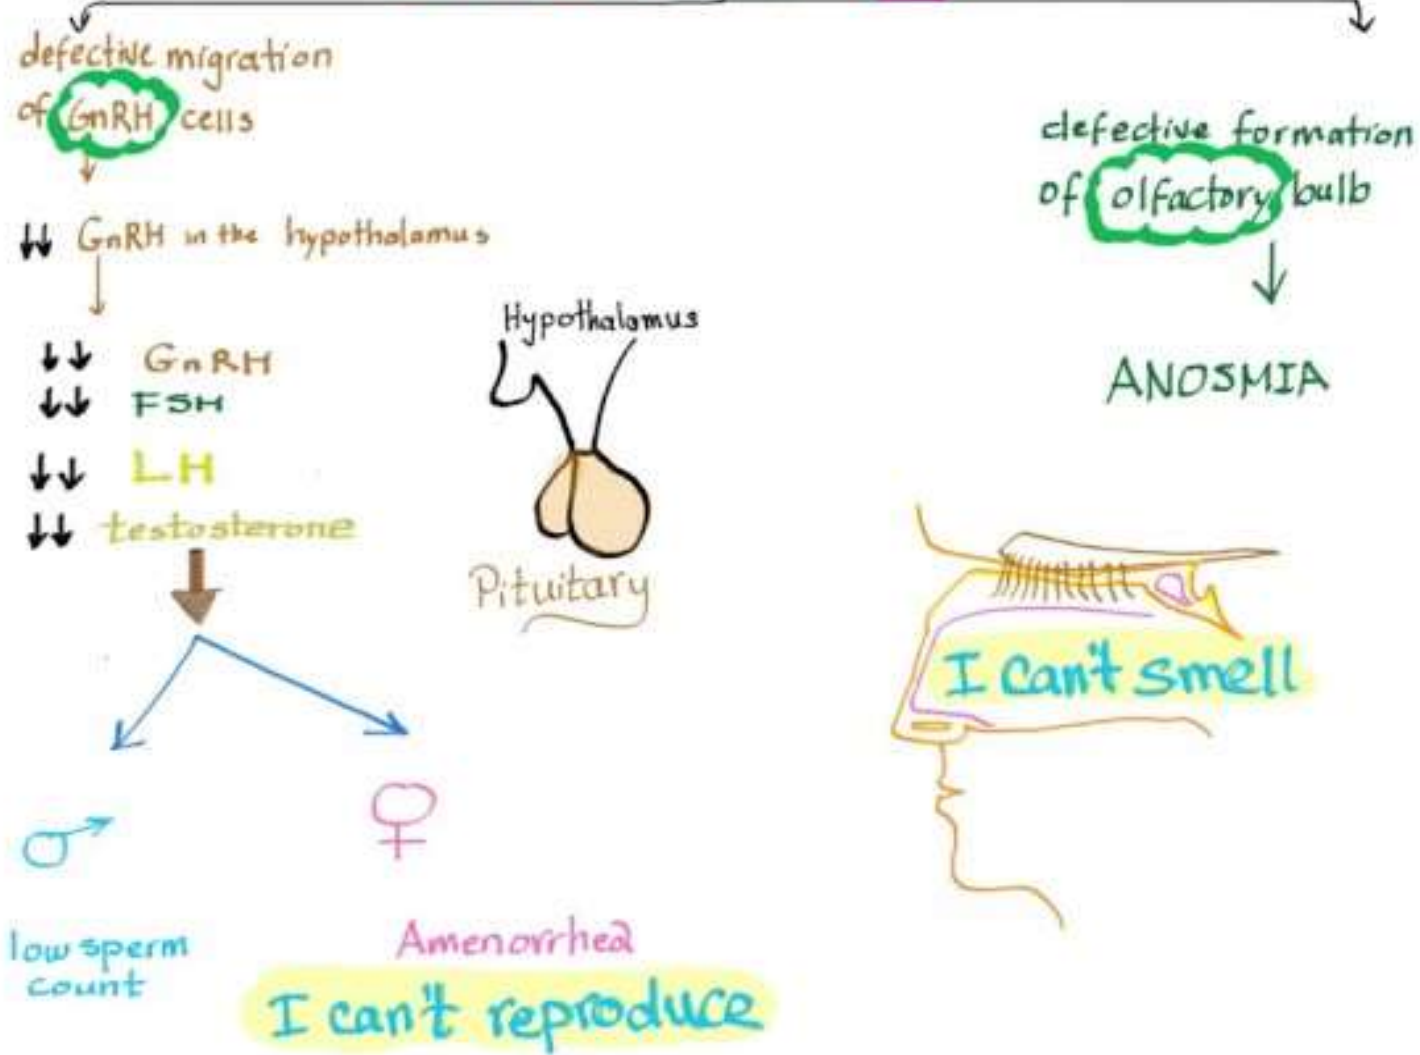 defective migration
of GnRH cells
↓↓ GnRH in the hypothalamus
↓↓ GnRH
↓↓ FSH
↓↓ LH
↓↓ testosterone
♂
low sperm
count
♀
Amenorrhea
I can't reproduce
Hypothalamus
Pituitary
defective formation
of olfactory bulb
ANOSMIA
I can't smell